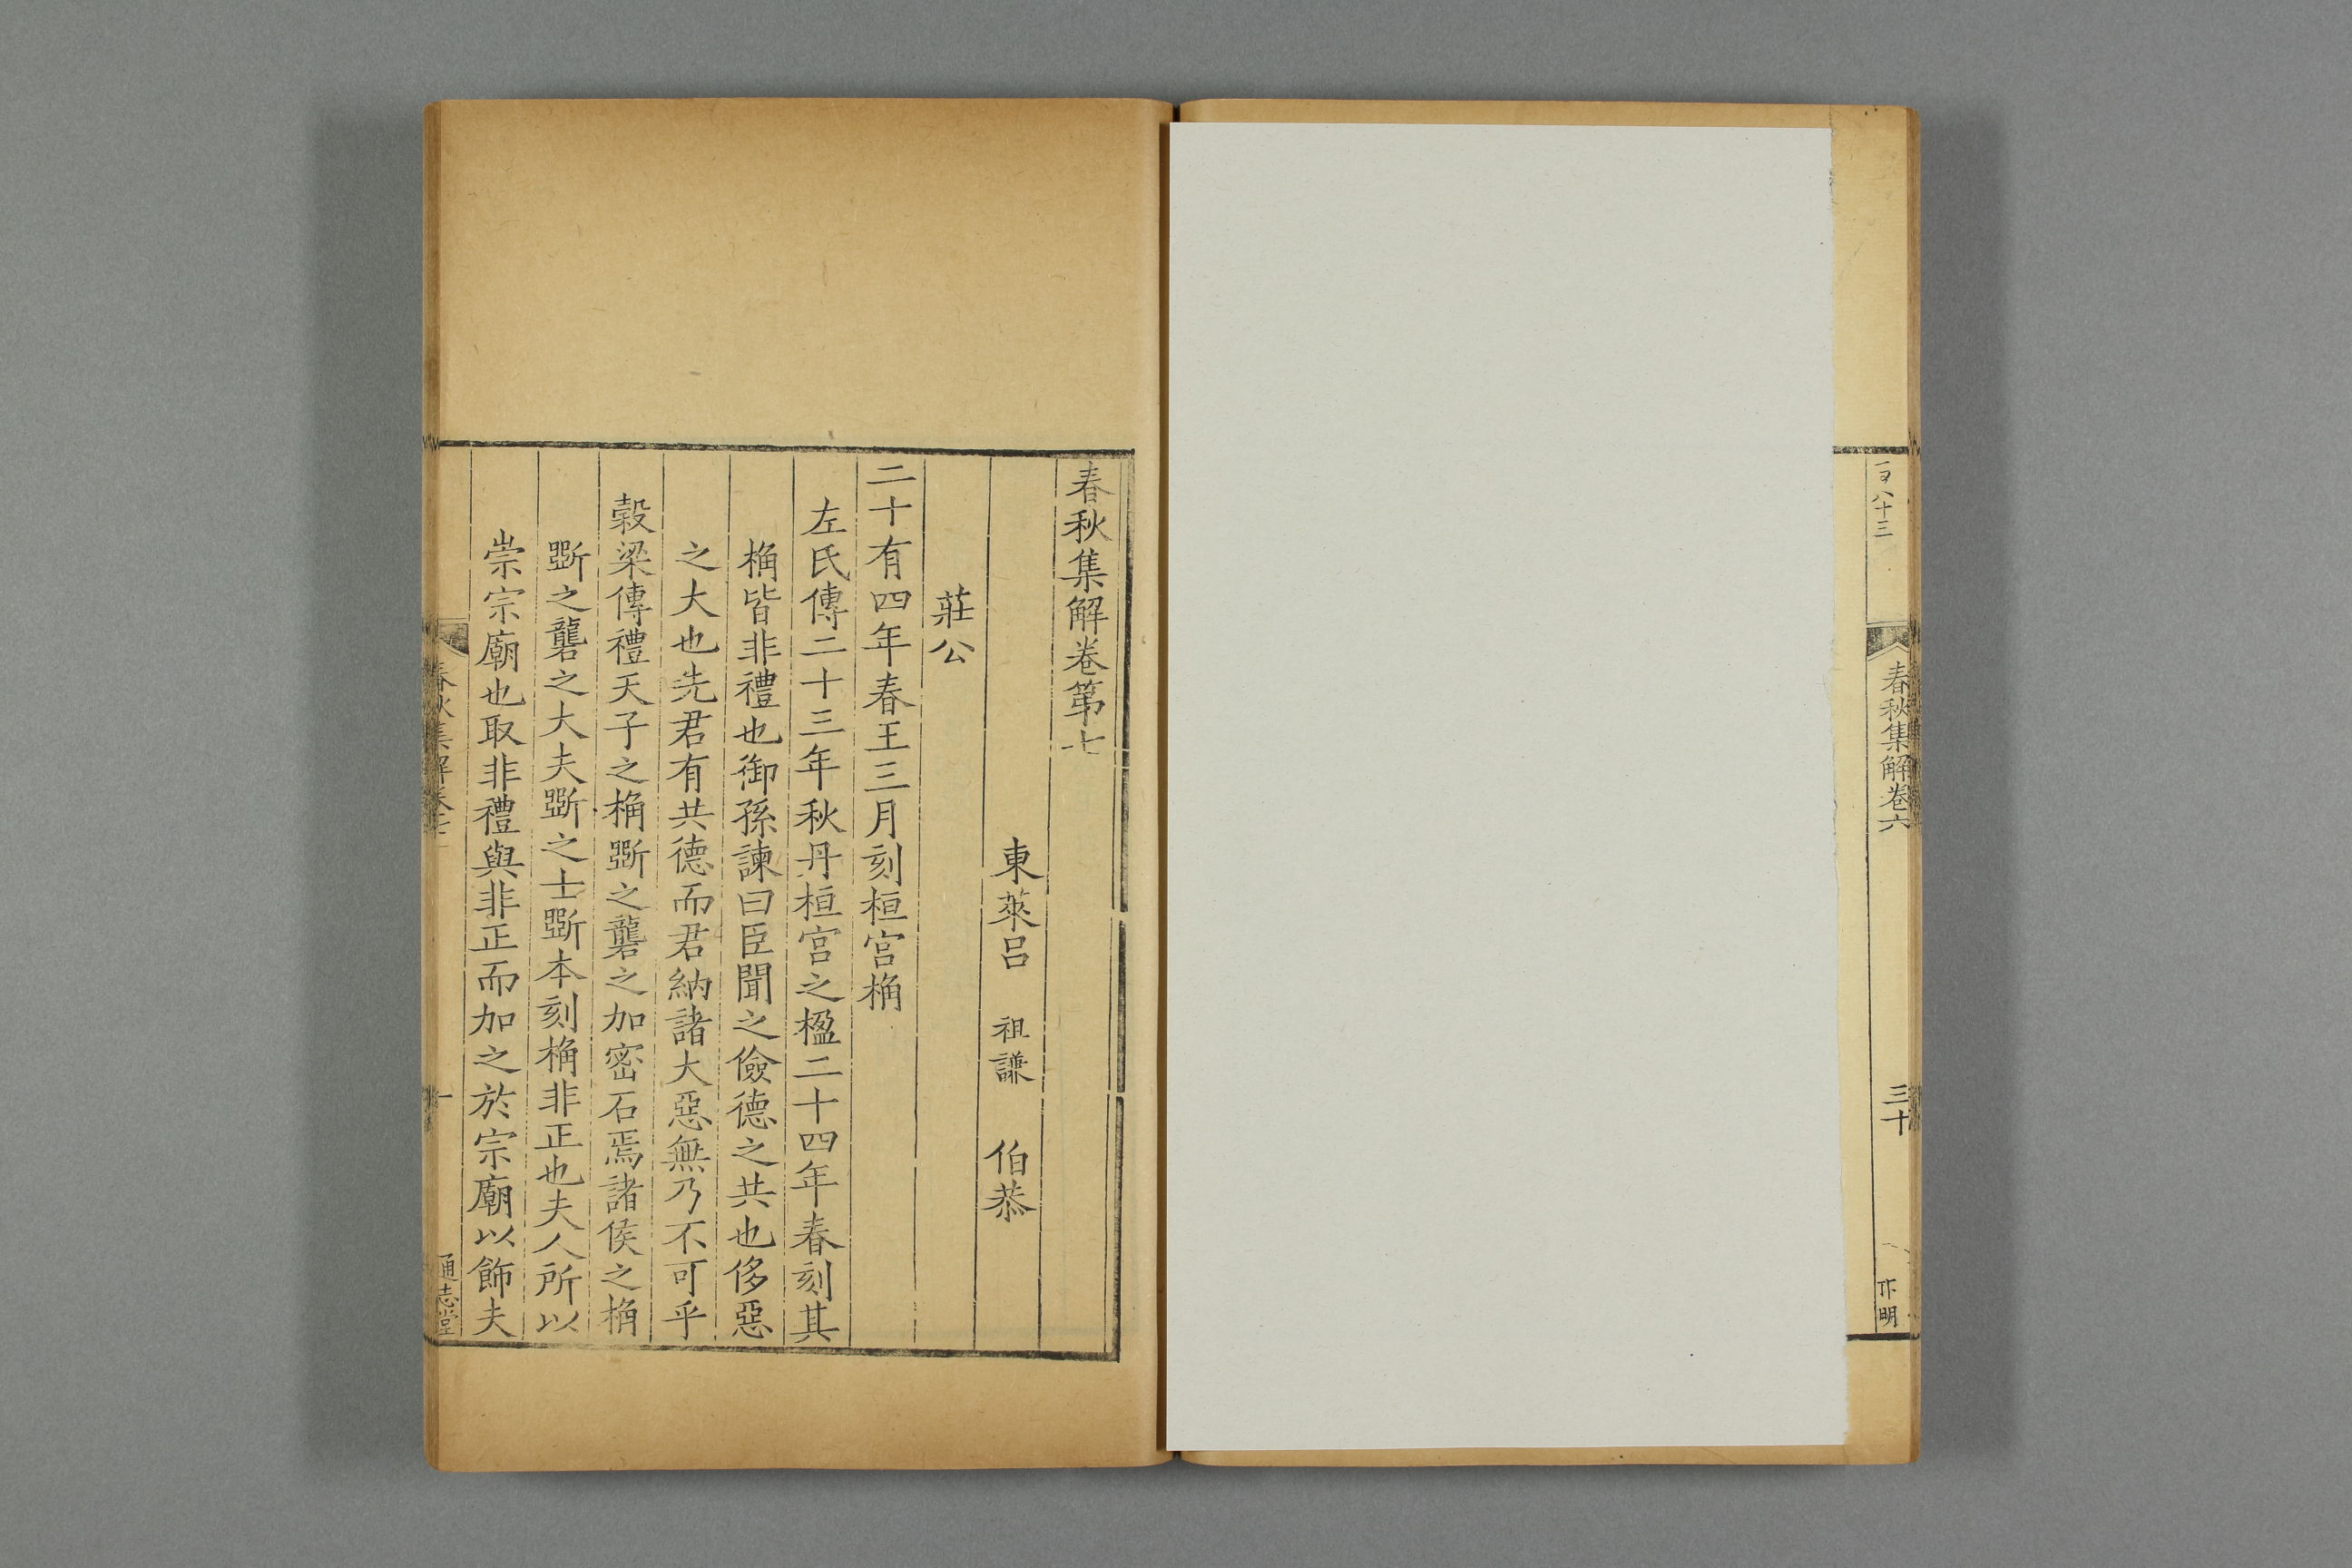 春秋集解卷六
三十
春秋集解卷第七
東萊呂 祖謙 伯恭
莊公
二十有四年春王三月刻桓宮桷
左氏傳二十三年秋丹桓宮之楹二十四年春刻其
桷皆非禮也御孫諫曰臣聞之儉德之共也侈惡
之大也先君有共德而君納諸大惡無乃不可乎
穀梁傳禮天子之桷斲之礱之加密石焉諸侯之桷
斲之礱之大夫斲之士斲本刻桷非正也夫人所以
崇宗廟也取非禮與非正而加之於宗廟以飾夫
春秋集解卷七
一
通志堂